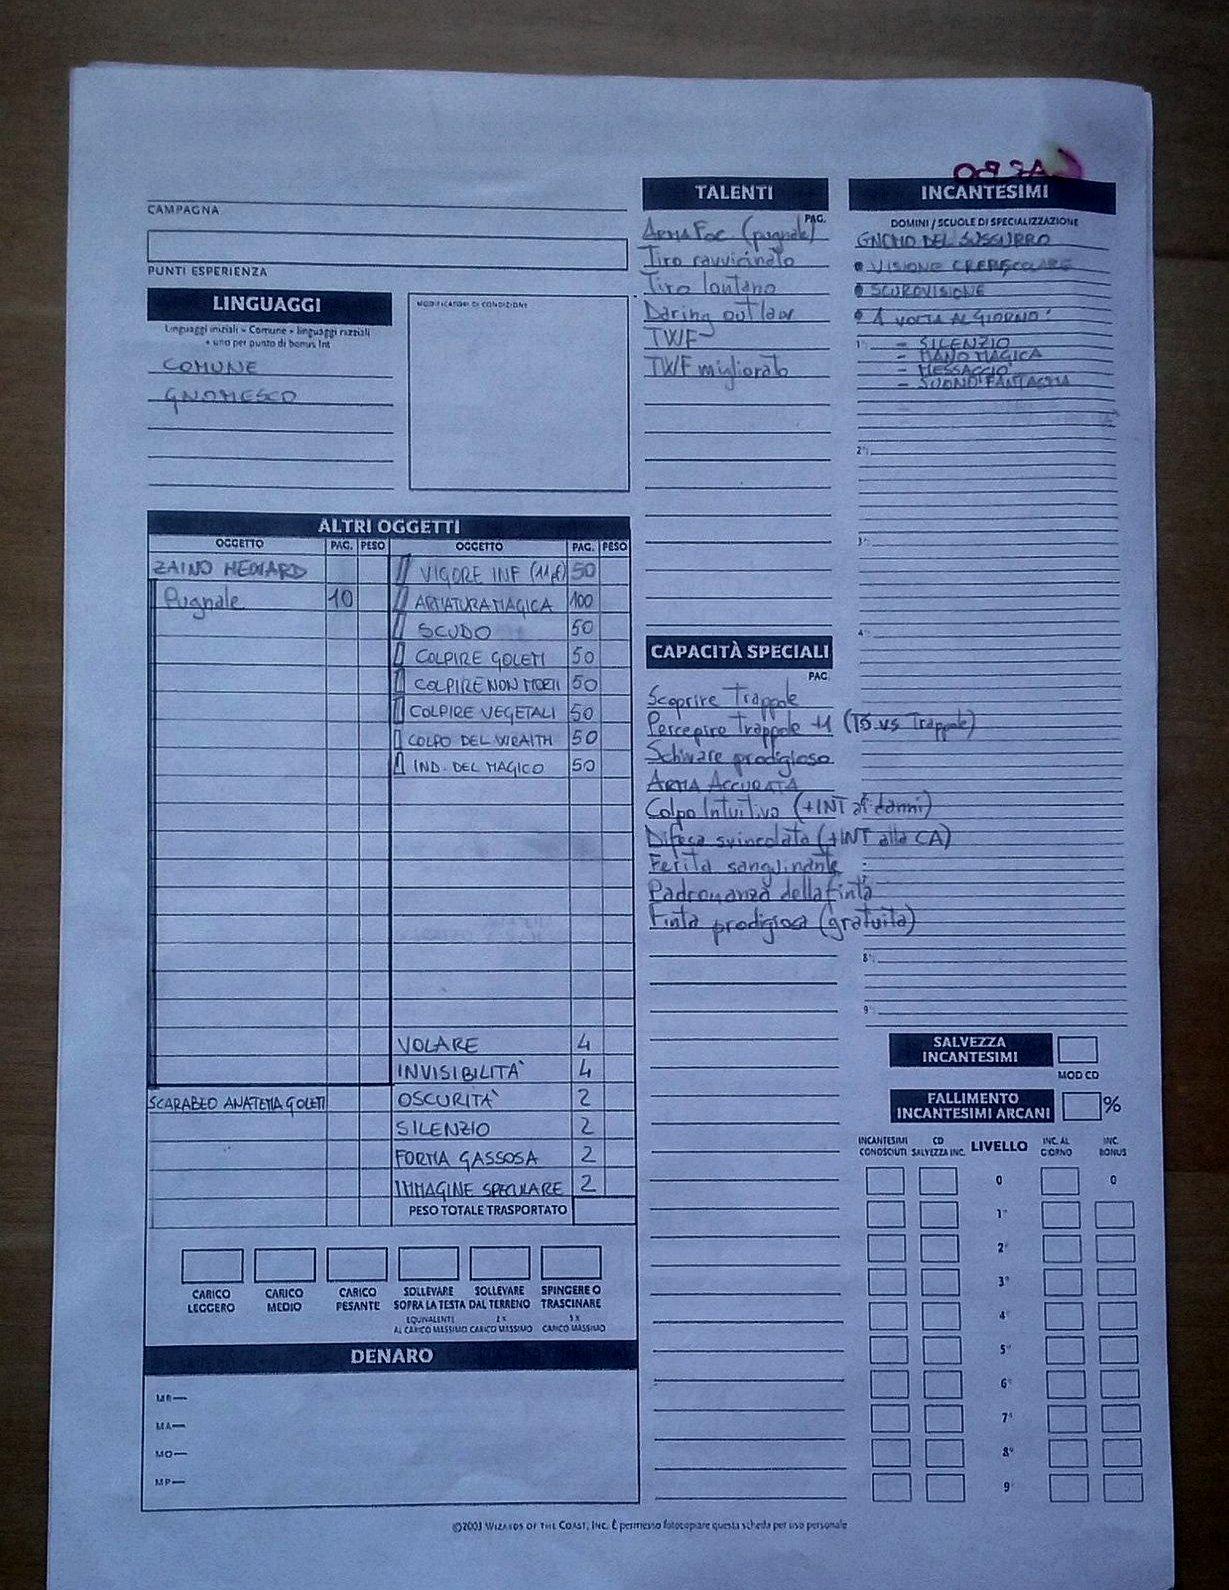 CAMPAGNA
PUNTI ESPERIENZA
LINGUAGGI
Linguaggi iniziali = Comune + linguaggi razziali
+ uno per punto di bonus Int
COMUNE
GNOMESCO
MODIFICATORI DI CONDIZIONE
TALENTI
PAG.
ARMA FOC (pugnale)
Tiro ravvicinato
Tiro lontano
Daring outlaw
TWF
TWF migliorato
INCANTESIMI
DOMINI / SCUOLE DI SPECIALIZZAZIONE
GNOMO DEL SUSSURRO
• VISIONE CREPUSCOLARE
• SCUROVISIONE
• 1 VOLTA AL GIORNO:
1° - SILENZIO
- MANO MAGICA
- MESSAGGIO
- SUONO FANTASMA
2°
3°
4°
8°
9°
ALTRI OGGETTI
OGGETTO PAG. PESO OGGETTO PAG. PESO
ZAINO HEWARD
Pugnale 10
VIGORE INF (11pf) 50
ARMATURA MAGICA 100
SCUDO 50
COLPIRE GOLEM 50
COLPIRE NON MORTI 50
COLPIRE VEGETALI 50
COLPO DEL WRAITH 50
IND. DEL MAGICO 50
VOLARE 4
INVISIBILITA' 4
SCARABEO ANATEMA GOLEM
OSCURITA' 2
SILENZIO 2
FORMA GASSOSA 2
IMMAGINE SPECULARE 2
PESO TOTALE TRASPORTATO
CAPACITÀ SPECIALI
PAG.
Scoprire Trappole
Percepire Trappole +1 (TS vs Trappole)
Schivare prodigioso
ARMA ACCURATA
Colpo Intuitivo (+INT ai danni)
Difesa svincolata (+INT alla CA)
Ferita sanguinante
Padronanza della finta
Finta prodigiosa (gratuita)
CARICO LEGGERO
CARICO MEDIO
CARICO PESANTE
SOLLEVARE SOPRA LA TESTA
EQUIVALENTE AL CARICO MASSIMO
SOLLEVARE DAL TERRENO
2 X CARICO MASSIMO
SPINGERE O TRASCINARE
5 X CARICO MASSIMO
DENARO
MR—
MA—
MO—
MP—
SALVEZZA
INCANTESIMI
MOD CD
FALLIMENTO
INCANTESIMI ARCANI
%
INCANTESIMI CONOSCIUTI
CD SALVEZZA INC.
LIVELLO
INC. AL GIORNO
INC. BONUS
0 0
1°
2°
3°
4°
5°
6°
7°
8°
9°
©2003 WIZARDS OF THE COAST, INC. È permesso fotocopiare questa scheda per uso personale